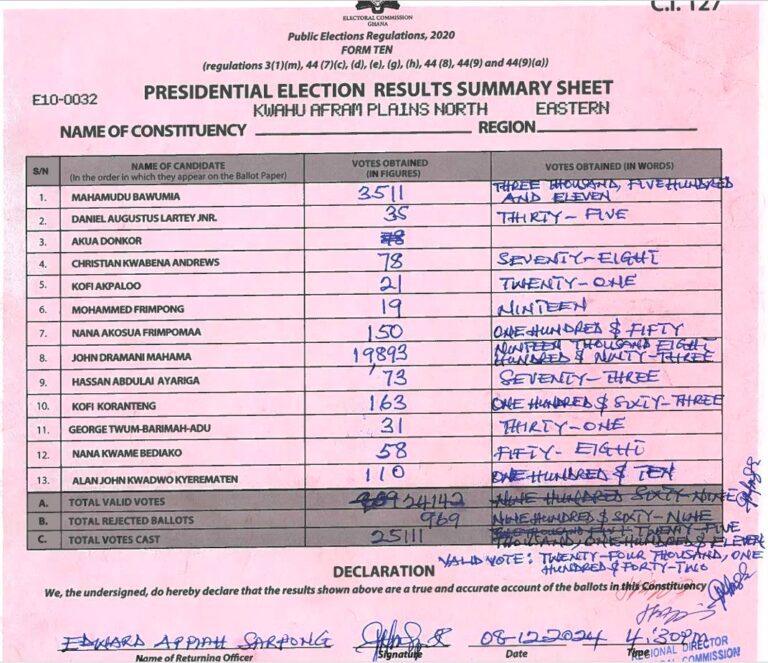 C.I. 127
ELECTORAL COMMISSION
GHANA
Public Elections Regulations, 2020
FORM TEN
(regulations 3(1)(m), 44 (7)(c), (d), (e), (g), (h), 44 (8), 44(9) and 44(9)(a))
E10-0032
PRESIDENTIAL ELECTION RESULTS SUMMARY SHEET
KWAHU AFRAM PLAINS NORTH EASTERN
NAME OF CONSTITUENCY REGION
S/N NAME OF CANDIDATE (In the order in which they appear on the Ballot Paper) VOTES OBTAINED (IN FIGURES) VOTES OBTAINED (IN WORDS)
1. MAHAMUDU BAWUMIA 3511 THREE THOUSAND, FIVE HUNDRED AND ELEVEN
2. DANIEL AUGUSTUS LARTEY JNR. 35 THIRTY-FIVE
3. AKUA DONKOR
4. CHRISTIAN KWABENA ANDREWS 78 SEVENTY-EIGHT
5. KOFI AKPALOO 21 TWENTY-ONE
6. MOHAMMED FRIMPONG 19 NINTEEN
7. NANA AKOSUA FRIMPOMAA 150 ONE HUNDRED & FIFTY
8. JOHN DRAMANI MAHAMA 19893 NINTEEN THOUSAND EIGHT HUNDRED & NINTY-THREE
9. HASSAN ABDULAI AYARIGA 73 SEVENTY-THREE
10. KOFI KORANTENG 163 ONE HUNDRED & SIXTY-THREE
11. GEORGE TWUM-BARIMAH-ADU 31 THIRTY-ONE
12. NANA KWAME BEDIAKO 58 FIFTY-EIGHT
13. ALAN JOHN KWADWO KYEREMATEN 110 ONE HUNDRED & TEN
A. TOTAL VALID VOTES 24142 NINE HUNDRED SIXTY-NINE
B. TOTAL REJECTED BALLOTS 969 NINE HUNDRED & SIXTY-NINE
C. TOTAL VOTES CAST 25111 TWENTY-FIVE THOUSAND, ONE HUNDRED & ELEVEN
VALID VOTE: TWENTY-FOUR THOUSAND, ONE HUNDRED & FORTY-TWO
DECLARATION
We, the undersigned, do hereby declare that the results shown above are a true and accurate account of the ballots in this Constituency
EDWARD APPIAH SARPONG 08-12-2024 4:30pm
Name of Returning Officer Signature Date Time
REGIONAL DIRECTOR
COMMISSION